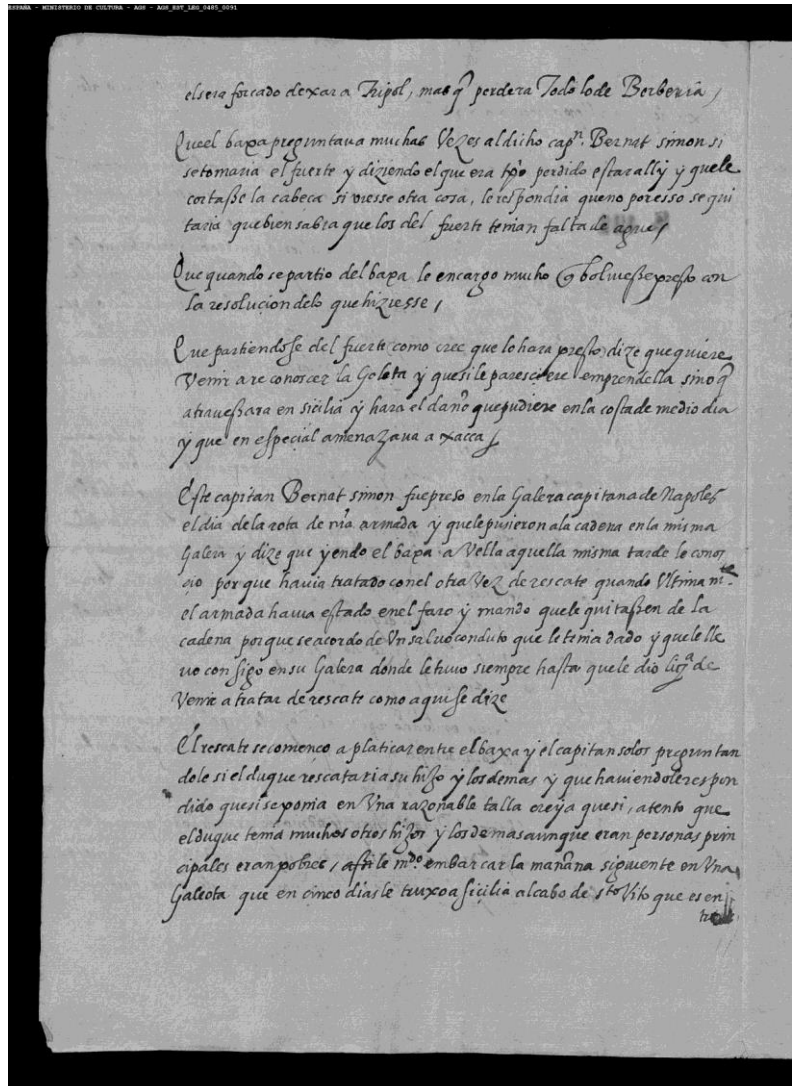 ESPAÑA - MINISTERIO DE CULTURA - AGS - AGS_EST_LEG_0485_0091
el sera forcado dexar a Tripol, mas q̃ perdera Todo lo de Berberia,
Que el baxa preguntaua muchas Vezes al dicho cap.n Bernat simon si
se tomaria el fuerte y diziendo el que era tpo perdido estar ally y que le
cortasse la cabeca si viesse otra cosa, le respondia que no por esso se qui
taria que bien sabia que los del fuerte tenian falta de agua,
Que quando se partio del baxa le encargo mucho q̃ boluiesse presto con
la resolucion de lo que hiziesse,
Que partiendosse del fuerte como cree que lo hara presto dize que quiere
Venir a reconoscer la Goleta y que si le paresciere emprendella sino q̃
atrauessara en sicilia y hara el daño que pudiere en la costa de medio dia
y que en especial amenazaua a xacca,
Este capitan Bernat simon fue preso en la Galera capitana de Napoles
el dia de la rota de nra armada y que le pusieron a la cadena en la misma
Galera y dize que yendo el baxa a Vella aquella misma tarde le conos
cio por que hauia tratado con el otra Vez de rescate quando Vltimam.te
el armada hauia estado en el faro y mando que le quitassen de la
cadena porque se acordo de Vn saluoconduto que le tenia dado y que le lle
uo consigo en su Galera donde le tuuo siempre hasta que le dio liçia de
Venir a tratar de rescate como aqui se dize
El rescate se començo a platicar entre el baxa y el capitan solos preguntan
dole si el duque rescataria su hijo y los demas y que hauiendole respon
dido que si se ponia en Vna razonable talla creya que si, atento que
el duque tenia muchos otros hijos y los demas aunque eran personas prin
cipales eran pobres, assi le mdo embarcar la mañana siguiente en Vna
Galeota que en cinco dias le truxo a sicilia al cabo de sto Vito que es en